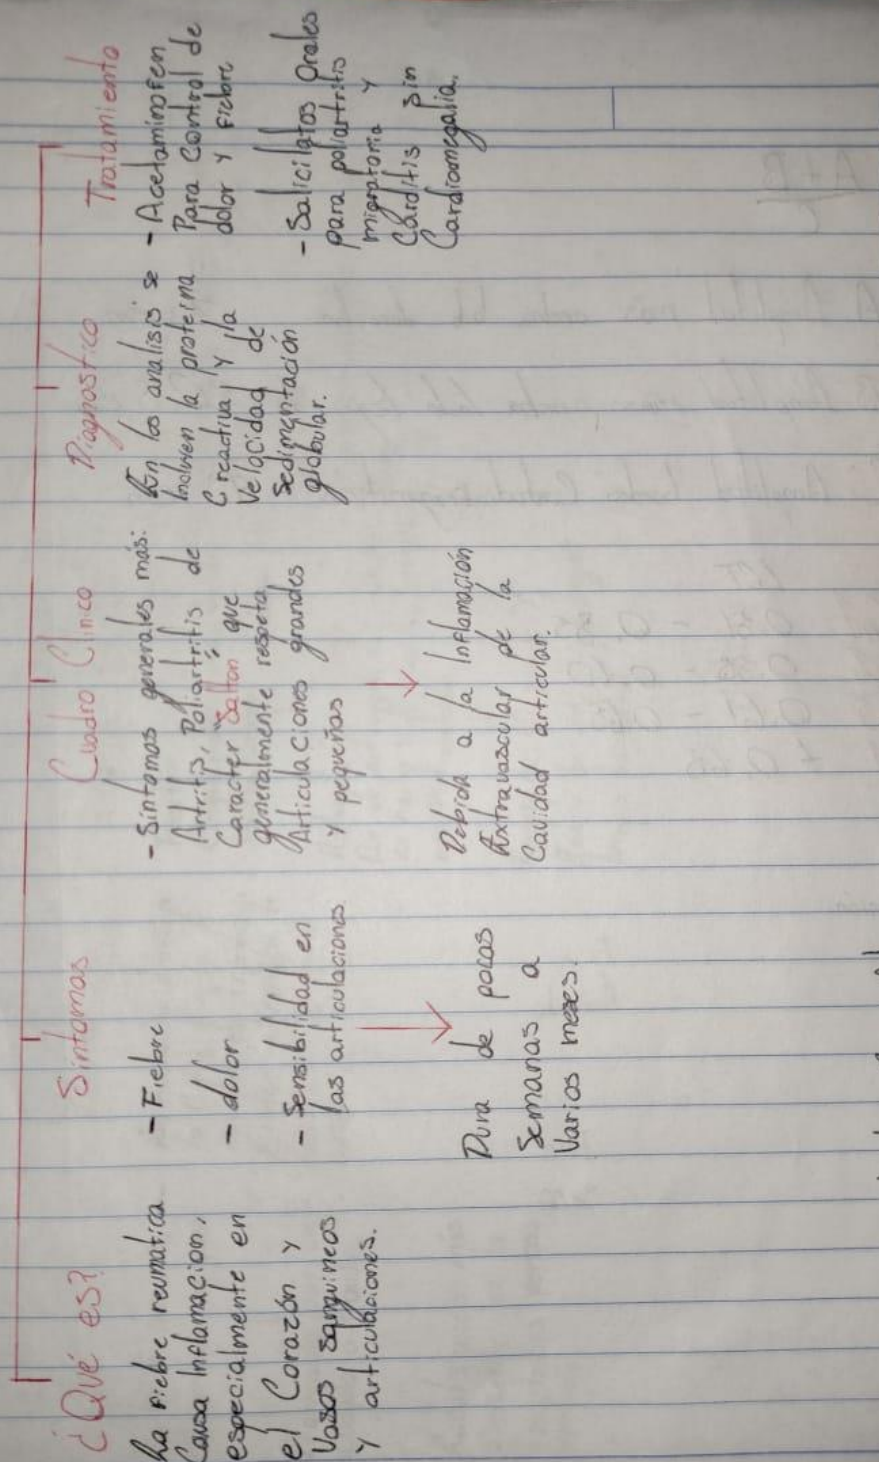 ¿Qué es?
La fiebre reumatica
Causa Inflamacion,
especialmente en
el Corazón y
Vasos sanguineos
y articulaciones.
Sintomas
- Fiebre
- dolor
- Sensibilidad en
las articulaciones
Dura de pocas
Semanas a
Varios meses.
Cuadro Clinico
- Sintomas generales más:
Artritis, Poliartritis de
Caracter "Salton" que
generalmente respeta
Articulaciones grandes
y pequeñas
Debida a la Inflamación
Extravascular de la
Cavidad articular.
Diagnostico
En los analisis se
Incluyen la proteina
C reactiva y la
Velocidad de
Sedimentación
globular.
Tratamiento
- Acetaminofen
Para Control de
dolor y fiebre
- Salicilatos Orales
para poliartritis
migratoria y
Carditis sin
Cardiomegalia.